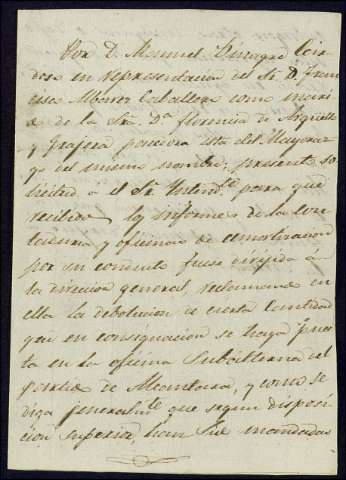 Por D. Manuel Vinagre
en representacion del Sr. D. Fran
cisco Alvarez Caballero como mari
do de la Sra. Da. Florencia de
y Grajera poseedora esta del Mayoraz
go del mismo nombre; presente so
licitud a el Sr. Intend.te para que
recibidos los informes de la Con
taduria y oficinas de amortizacion
por su conducto fuese dirigida á
la direccion general, reclamando en
ella la debolucion de cierta Cantidad
que en consignacion se haya pues
ta en la oficina Subalterna del
partido de Alcantara, y como se
diga jeneralm.te que segun disposi
cion Superior, han sido mandadas